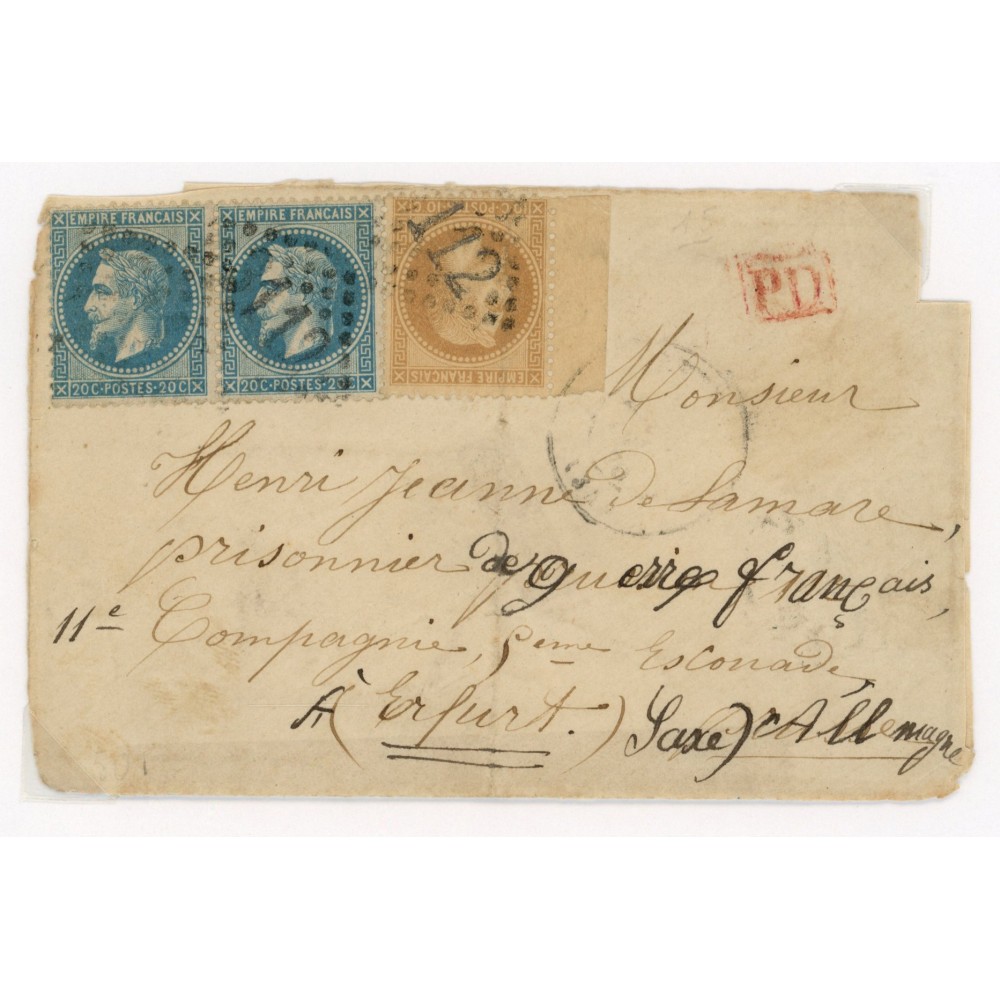 EMPIRE FRANÇAIS
20 C · POSTES · 20 C
EMPIRE FRANÇAIS
20 C · POSTES · 20 C
EMPIRE FRANÇAIS
P.D.
Monsieur
Henri Jeanne de Lamare,
prisonnier de guerre français,
11e Compagnie, 5eme Escouade,
À (Erfurt.) Saxe) Allemagne